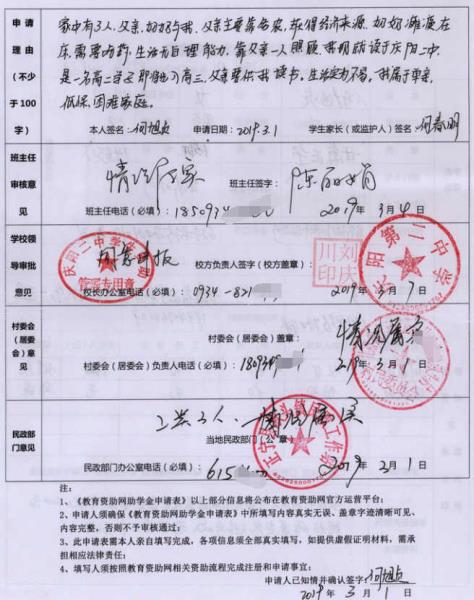 申请
理由
(不少
于100
字)
家中有3人,父亲,奶奶与我,父亲主要靠务农,取得经济来源,奶奶瘫痪在
床,需要吃药,生活无自理能力,靠父亲一人照顾,我现就读于庆阳二中,
是一名高二学生即将步入高三,父亲要供我读书,生活定力不足,我属于单亲,
低保,困难家庭。
本人签名: 申请日期:2019.3.1 学生家长(或监护人)签名:何春明
班主任
审核意
见
情况属实
班主任签字:
班主任电话(必填): 1850934
2019年3月4日
学校领
导审批
意见
同意申报
校方负责人签字(校方盖章):
校长办公室电话(必填): 0934-821
2019年3月7日
管理专用章
川刘
印庆
阳第二中学
村委会
(居委
会)意
见
情况属实
村委会(居委会)盖章:
村委会(居委会)负责人电话(必填):
2019年3月1日
民政部
门意见
情况属实
当地民政部门(公章):
民政部门办公室电话(必填): 615
2019年3月1日
注:
1、《教育资助网助学金申请表》以上部分信息将公布在教育资助网官方运营平台;
2、申请人须确保《教育资助网助学金申请表》中所填写内容真实无误、盖章字迹清晰可见、
内容完整,否则不予审核通过;
3、此申请表需本人亲自填写完成,各项信息须全部真实填写,如提供虚假证明材料,需承
担相应法律责任;
4、填写人须按照教育资助网相关资助流程完成注册和申请事宜;
申请人已知情并确认签字:
2019年3月1日